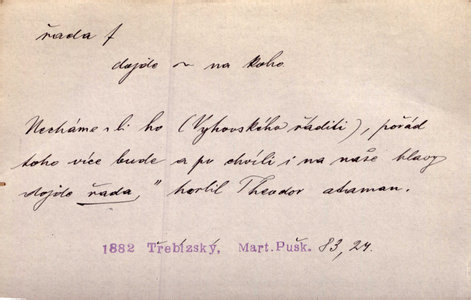 řada f
dojde ~ na koho
Necháme-li ho (Vyhovského řáditi), pořád
toho více bude a po chvíli i na naše hlavy
dojde řada," horlil Theodor ataman.
1882 Třebízský, Mart. Pušk. 83, 24.